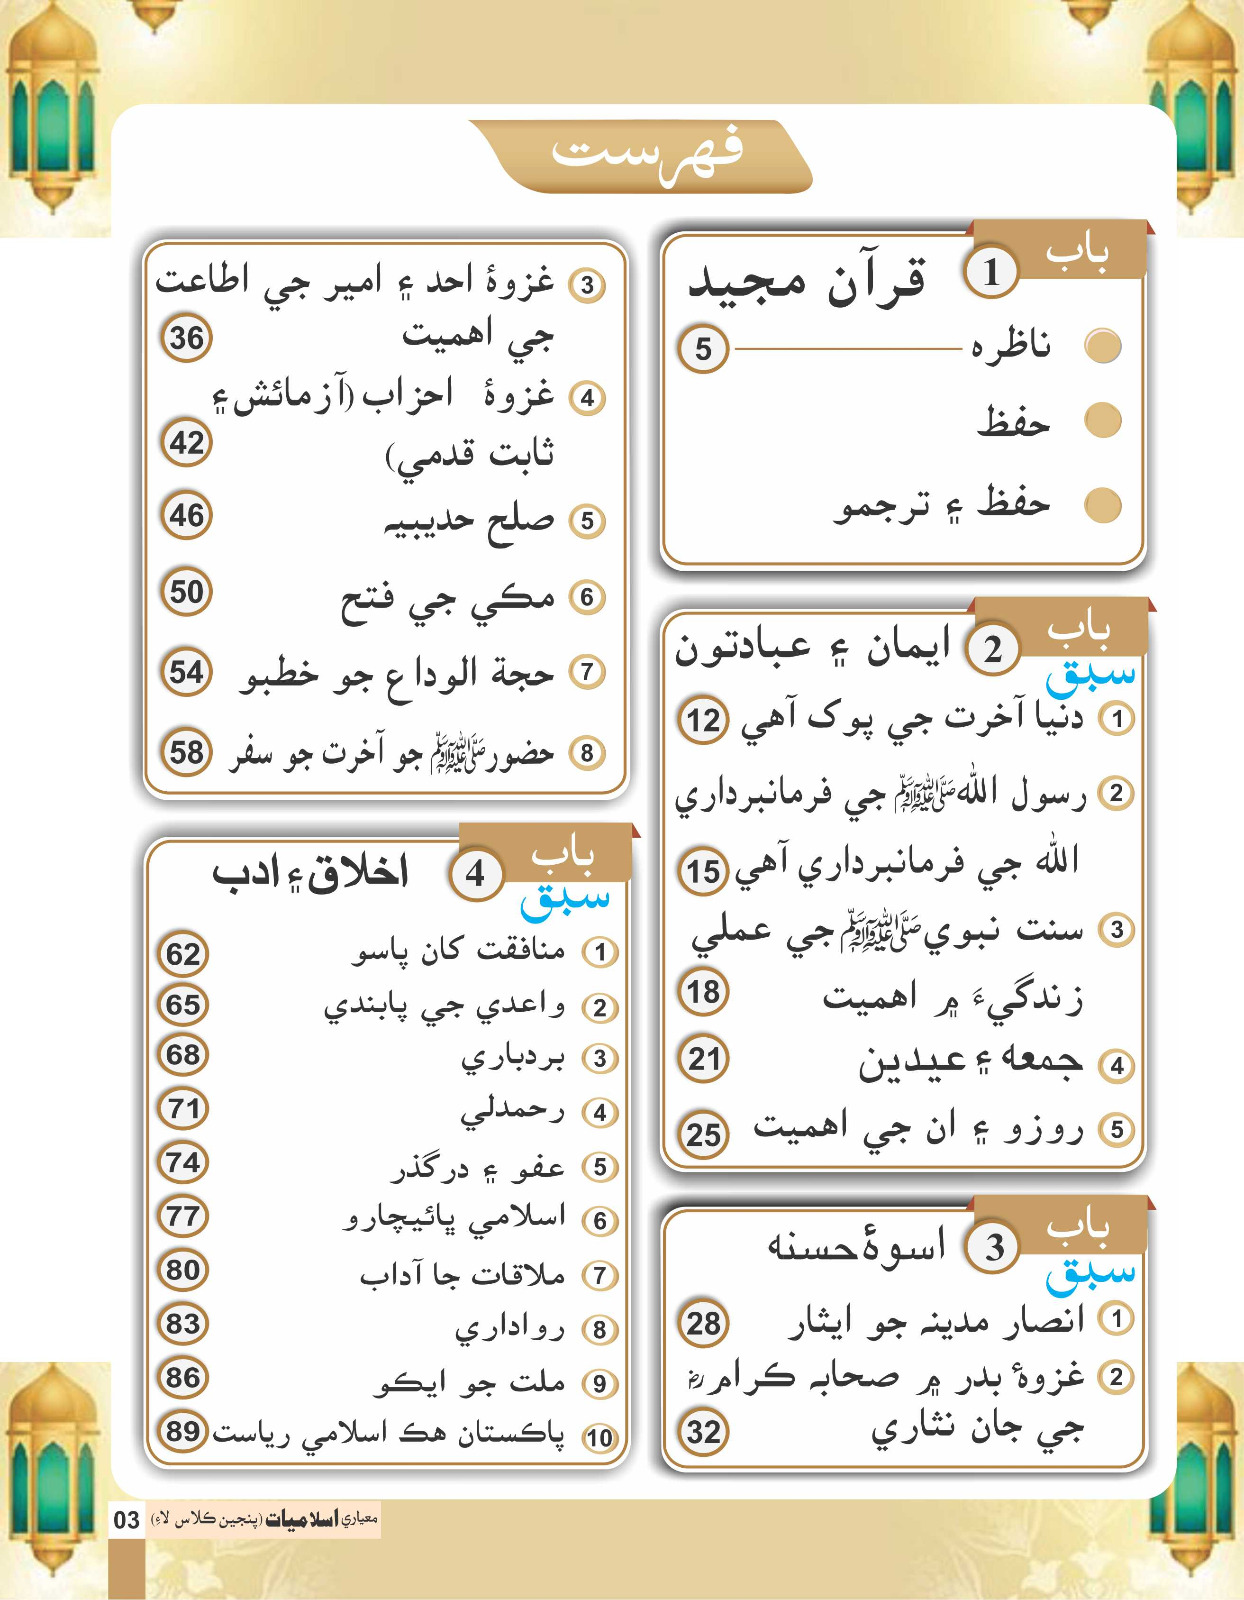 فهرست
باب 1 قرآن مجيد
ناظره 5
حفظ
حفظ ۽ ترجمو
باب 2 ايمان ۽ عبادتون
سبق
1 دنيا آخرت جي پوک آهي 12
2 رسول الله ﷺ جي فرمانبرداري
الله جي فرمانبرداري آهي 15
3 سنت نبوي ﷺ جي عملي
زندگيءَ ۾ اهميت 18
4 جمعه ۽ عيدين 21
5 روزو ۽ ان جي اهميت 25
باب 3 اسوۀ حسنه
سبق
1 انصار مدينہ جو ايثار 28
2 غزوۀ بدر ۾ صحابہ ڪرام رضہ
جي جان نثاري 32
3 غزوۀ احد ۽ امير جي اطاعت
جي اهميت 36
4 غزوۀ احزاب (آزمائش ۽
ثابت قدمي) 42
5 صلح حديبيہ 46
6 مڪي جي فتح 50
7 حجة الوداع جو خطبو 54
8 حضور ﷺ جو آخرت جو سفر 58
باب 4 اخلاق ۽ ادب
سبق
1 منافقت کان پاسو 62
2 واعدي جي پابندي 65
3 بردباري 68
4 رحمدلي 71
5 عفو ۽ درگذر 74
6 اسلامي ڀائيچارو 77
7 ملاقات جا آداب 80
8 رواداري 83
9 ملت جو ايڪو 86
10 پاڪستان هڪ اسلامي رياست 89
معياري اسلاميات (پنجين ڪلاس لاءِ) 03